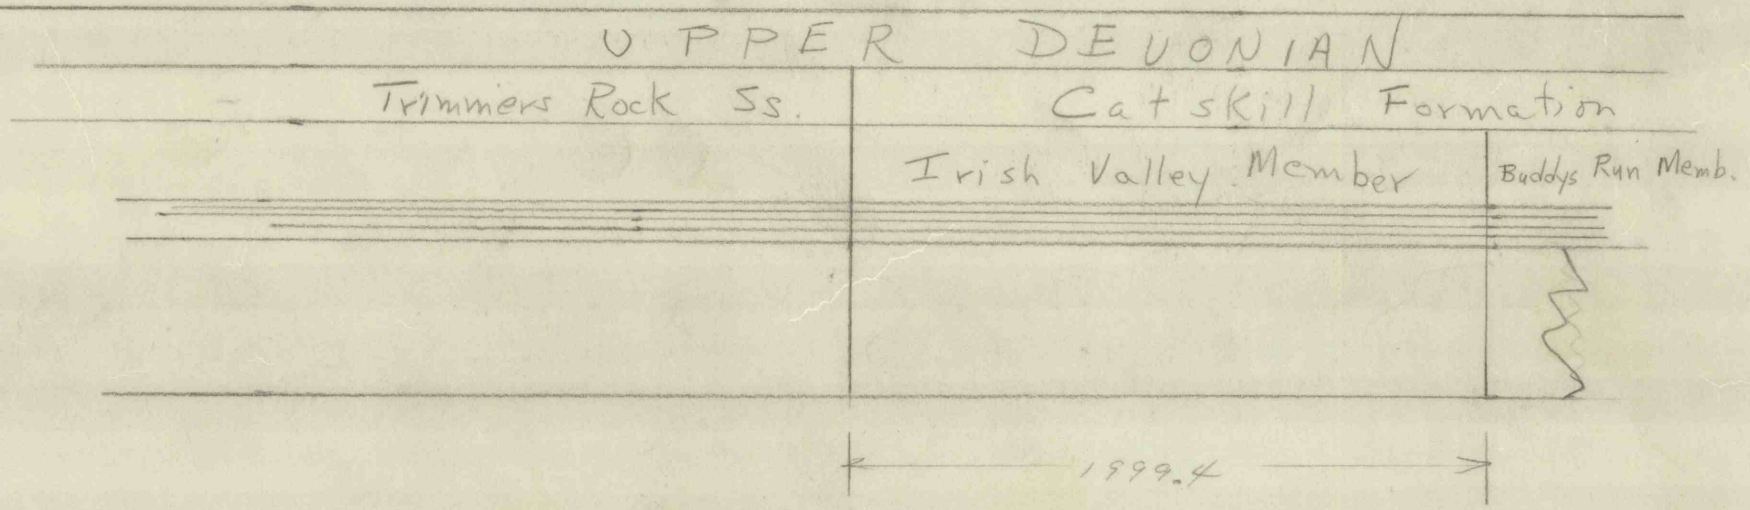 UPPER DEVONIAN
Trimmers Rock Ss. Catskill Formation
Irish Valley Member Buddys Run Memb.
1999.4